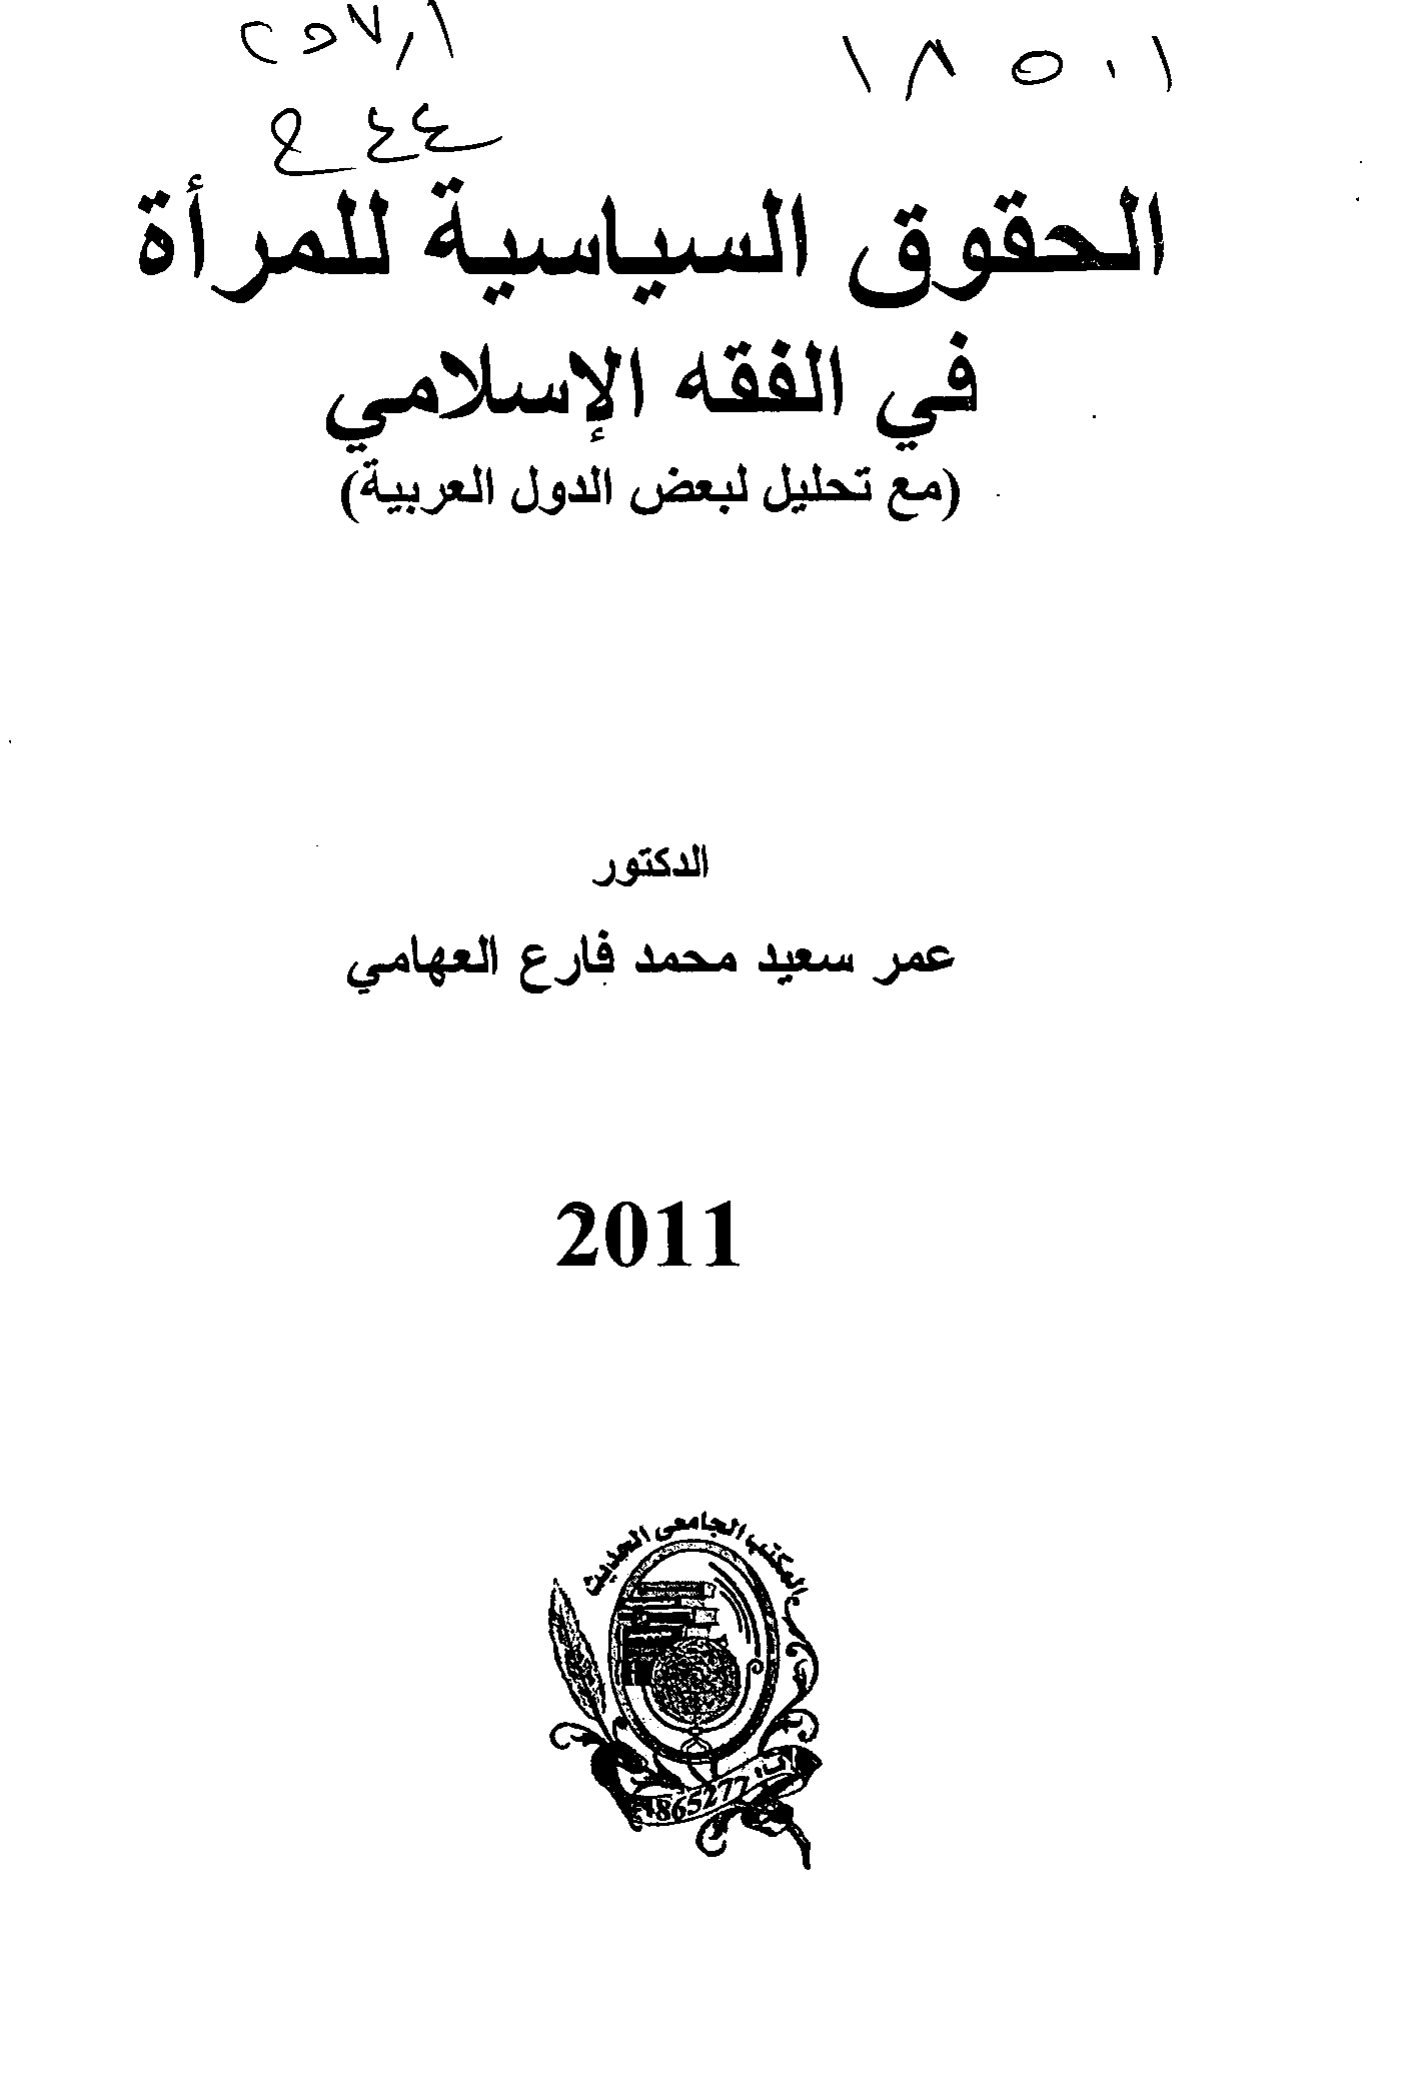 ١٨٥٠١
٢٥٧٫١
الحقوق السياسية للمرأة
في الفقه الإسلامي
(مع تحليل لبعض الدول العربية)
الدكتور
عمر سعيد محمد فارع العهامي
2011
المكتب الجامعى الحديث
4865277